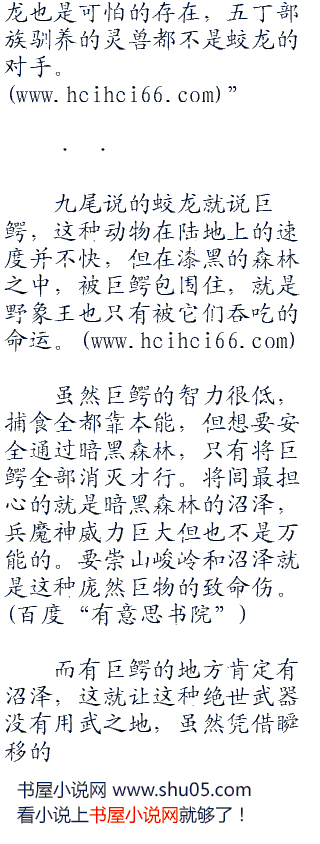 龙也是可怕的存在，五丁部
族驯养的灵兽都不是蛟龙的
对手。
(www.hcihci66.com)”
. .
九尾说的蛟龙就说巨
鳄，这种动物在陆地上的速
度并不快，但在漆黑的森林
之中，被巨鳄包围住，就是
野象王也只有被它们吞吃的
命运。(www.hcihci66.com)
虽然巨鳄的智力很低，
捕食全都靠本能，但想要安
全通过暗黑森林，只有将巨
鳄全部消灭才行。将闾最担
心的就是暗黑森林的沼泽，
兵魔神威力巨大但也不是万
能的。要崇山峻岭和沼泽就
是这种庞然巨物的致命伤。
(百度“有意思书院”)
而有巨鳄的地方肯定有
沼泽，这就让这种绝世武器
没有用武之地，虽然凭借瞬
移的
书屋小说网 www.shu05.com
看小说上书屋小说网就够了！